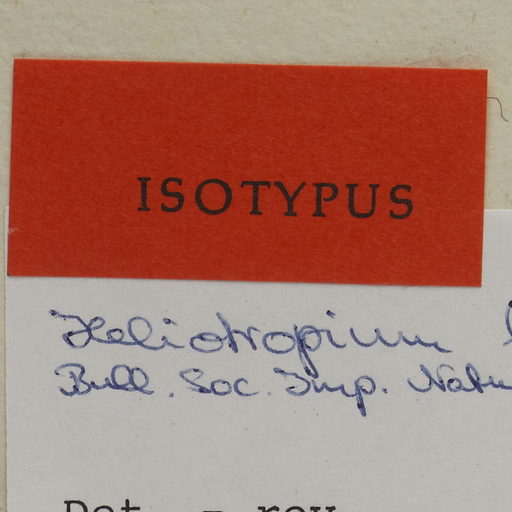 ISOTYPUS
Heliotropium
Bull. Soc. Imp. Natu
Det. – rev.